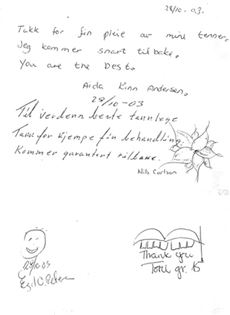 28/10-03.
Takk for fin pleie av mine tenner.
Jeg kommer snart tilbake.
You are the best.
Aida Kinn Andersen.
28/10-03
Til verdens beste tannlege
Takk for kjempe fin behandling.
Kommer garantert tilbake.
Nils Carlsen
Thank you